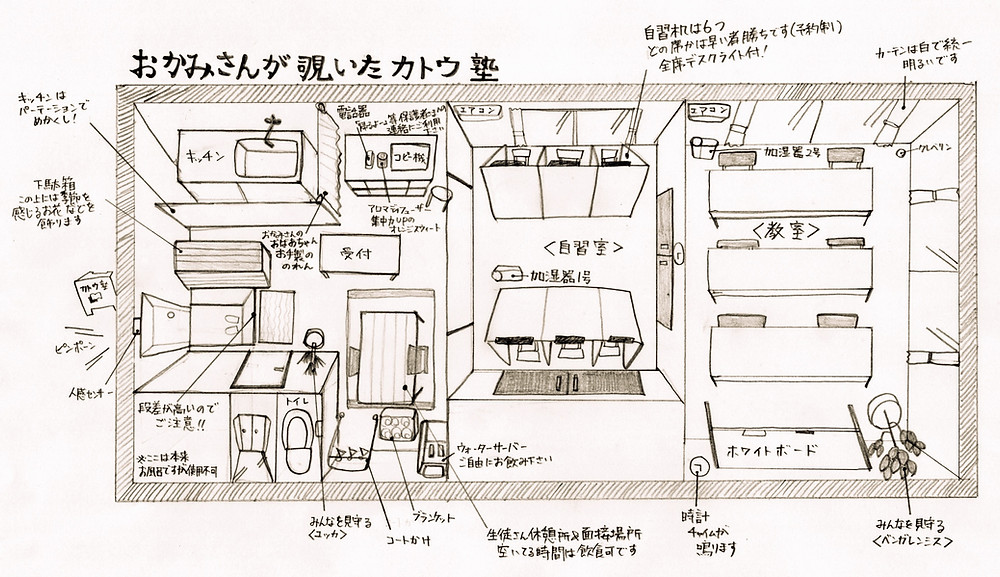 おかみさんが覗いたカトウ塾
自習机は6つ
どの席かは早い者勝ちです(予約制)
全席デスクライト付!
カーテンは白で統一
明るいです
キッチンは
パーテーションで
めかくし!
下駄箱
この上には季節を
感じるお花などを
飾ります
カトウ塾
ピンポーン
人感センサー
キッチン
電話器
等、保護者さんの
連絡にご利用
下さい
コピー機
アロマディフューザー
集中力UPの
オレンジスウィート
おかみさんの
おばあちゃん
お手製の
のれん
受付
エアコン
<自習室>
加湿器1号
エアコン
加湿器2号
クレベリン
<教室>
段差が高いので
ご注意!!
トイレ
※ここは本来
お風呂ですが使用不可
ウォーターサーバー
ご自由にお飲み下さい
ホワイトボード
みんなを見守る
<ユッカ>
コートかけ
ブランケット
生徒さん休憩所&面接場所
空いてる時間は飲食可です
時計
チャイムが
鳴ります
みんなを見守る
<ベンガレンシス>